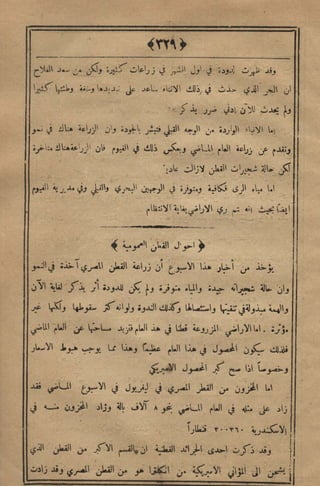 ﴿٣٢٩﴾
وقد ظهرت الدودة في اول الشهر في زراعات كثيرة ولكن من سعد الفلاح
ان الحر الذي حدث في ذلك الاثناء ساعد على تبديدها وملاشاتها كثيرا
ولم يحدث للآن ادنى ضرر يذكر
اما الانباء الواردة من الوجه القبلي فتبشر بالجودة وان الزراعة هناك في نمو
وتقدم عن زراعة العام الماضي وبعكس ذلك في الفيوم فان الزراعة هناك متاخرة
لكن حالة شجيرات القطن لازالت عادية
اما مياه الرى فكافية ومتوفرة في الوجهين البحري والقبلي وفي مديرية الفيوم
ايضا بحيث انه تم ري الاراضي بغاية الانتظام
﴿ احوال القطن العمومية ﴾
يؤخذ من أخبار هذا الاسبوع أن زراعة القطن المصري آخذة في النمو
وان حالة شجيراته جيدة والمياه متوفرة ولم يكن للدودة أثر يذكر لغاية الآن
والهمة مبذولة في تنقيتها واستئصالها وكذلك الندوة ولو انه كثر سقوطها ولكنها غير
مؤثرة . اما الاراضي المزروعة قطنا في هذا العام فتزيد مساحتها عن العام الماضي
فلذلك سيكون المحصول في هذا العام عظيما وهذا مما يوجب هبوط الاسعار
وخصوصا اذا صح كبر المحصول الامريكي
اما المخزون من القطن المصري في ليفربول في الاسبوع الماضي فقد
زاد على مثله في العام الماضي بنحو آلاف بالة وزاد المخزون منه في
الاسكندرية ٢٠٠٣٦٠ قنطارا
وقد ذكرت احدى الجرائد القطنية ان القسم الاكبر من القطن الذي
يشحن الى المواني الاميركية من انكلترا هو من القطن المصري وقد زادت